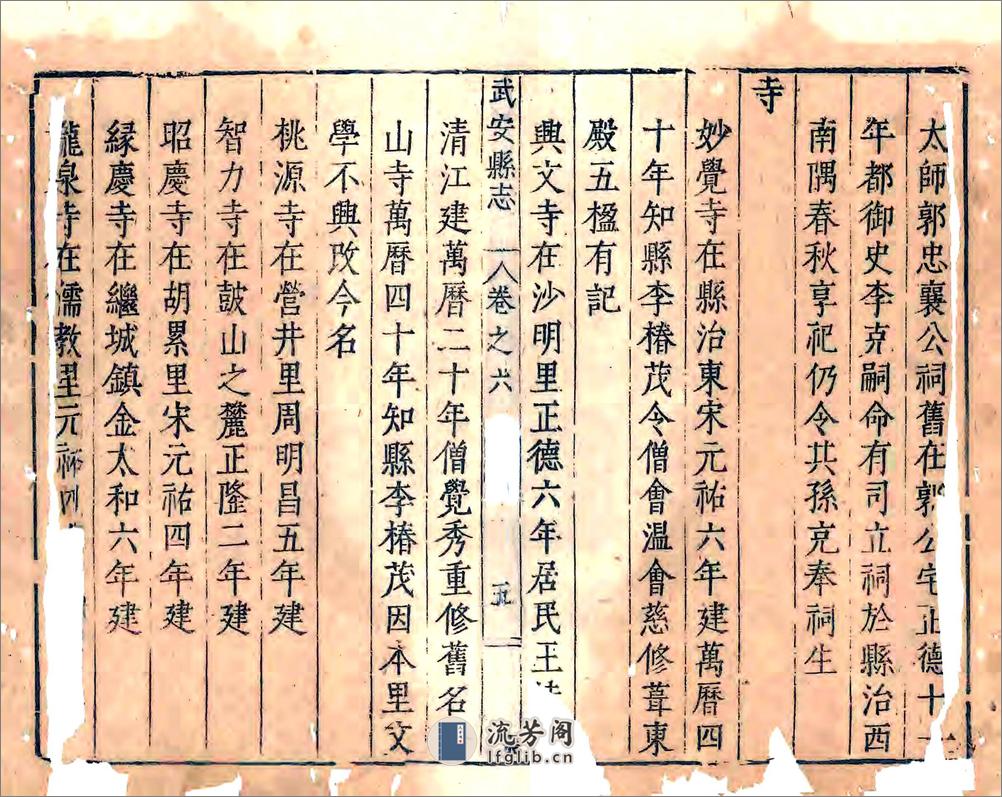 太師郭忠襄公祠舊在郭公宅正德十一
年都御史李克嗣命有司立祠於縣治西
南隅春秋享祀仍令其孫克奉祠生
寺
妙覺寺在縣治東宋元祐六年建萬曆四
十年知縣李椿茂令僧會溫會慈修葺東
殿五楹有記
興文寺在沙明里正德六年居民王
武安縣志 卷之六 五
清江建萬曆二十年僧覺秀重修舊名
山寺萬曆四十年知縣李椿茂因本里文
學不興改今名
桃源寺在營井里周明昌五年建
智力寺在鼓山之麓正隆二年建
昭慶寺在胡累里宋元祐四年建
緣慶寺在繼城鎮金太和六年建
龍泉寺在儒教里元祐四
流芳阁
lfglib.com